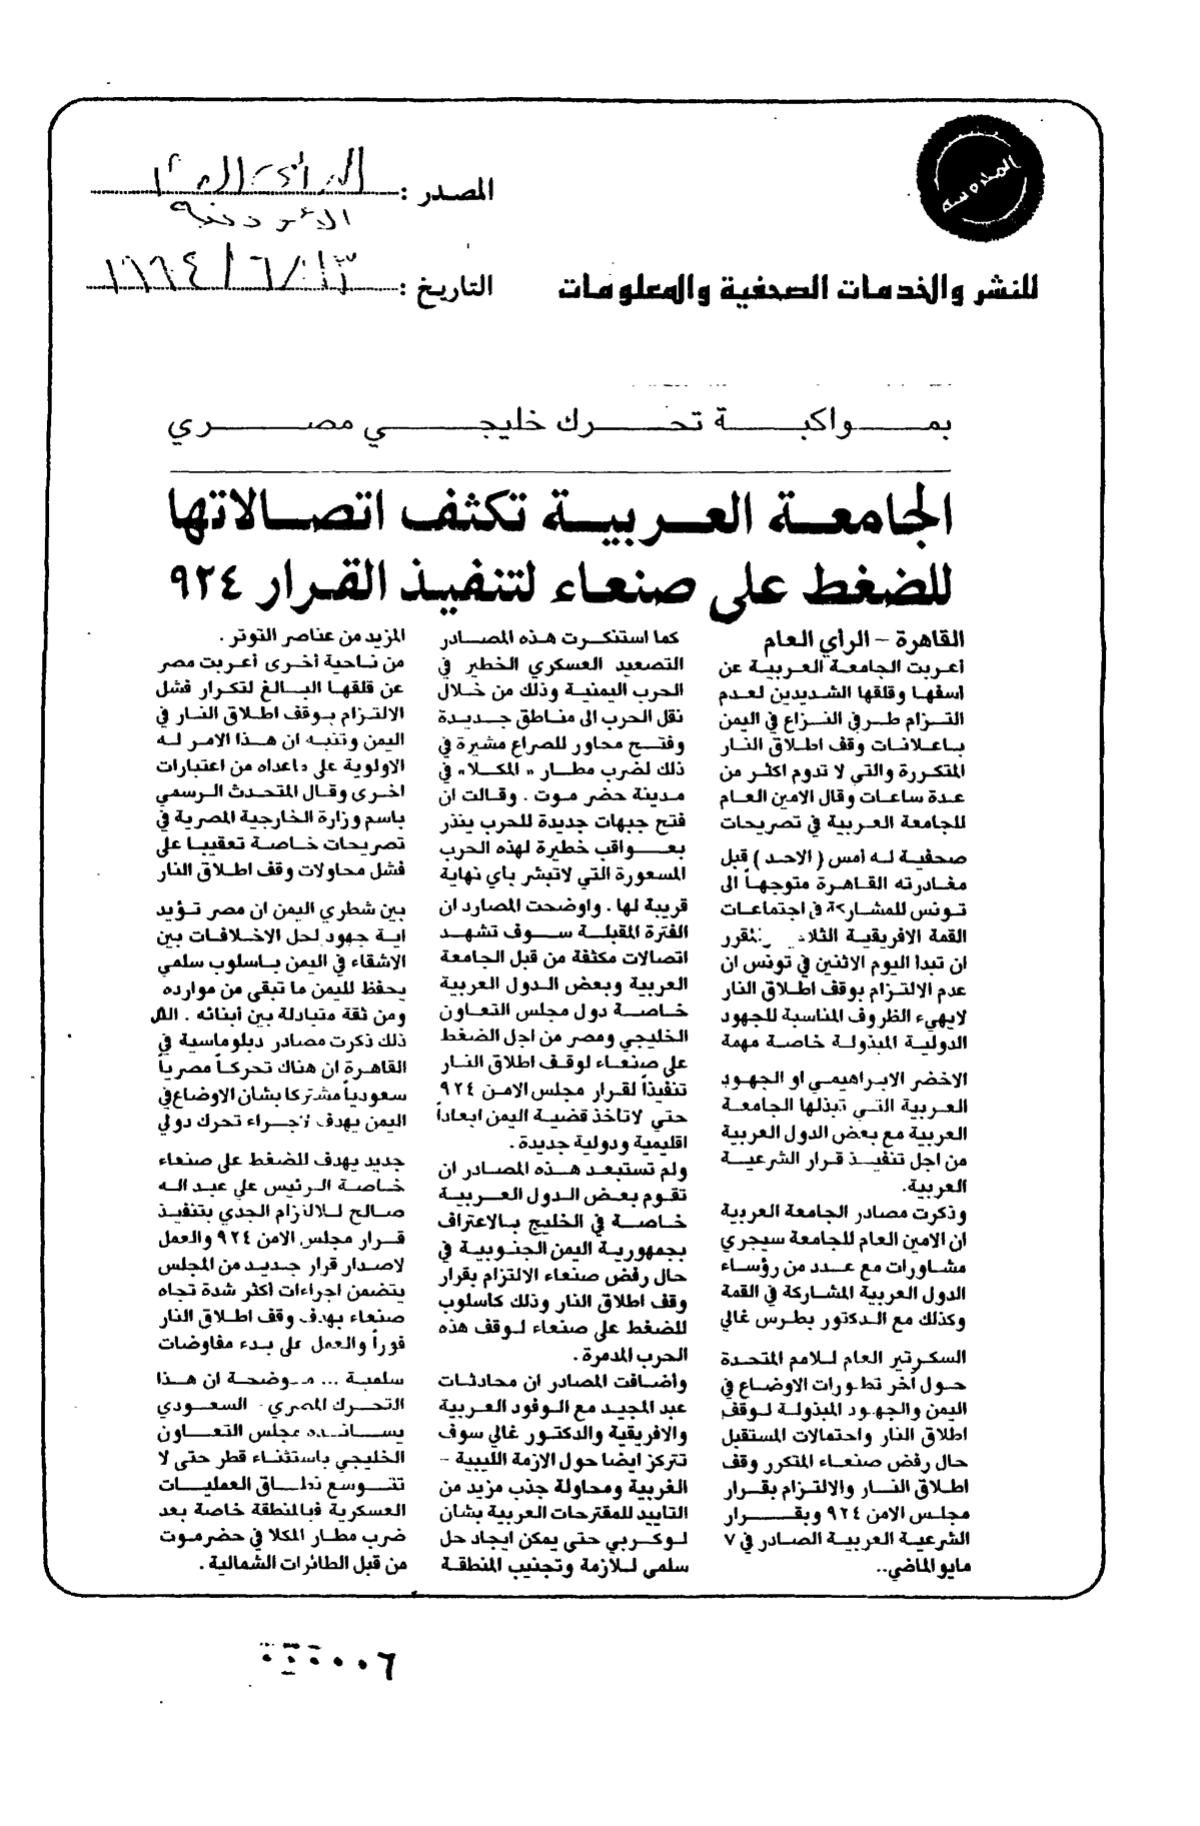 المدوسة
المصدر : الرأي العام
الأردنية
للنشر والخدمات الصحفية والمعلومات
التاريخ : ١٣/٦/١٩٩٤
بمواكبة تحرك خليجي مصري
الجامعة العربية تكثف اتصالاتها
للضغط على صنعاء لتنفيذ القرار ٩٢٤
القاهرة - الرأي العام
أعربت الجامعة العربية عن
اسفها وقلقها الشديدين لعدم
التزام طرفي النزاع في اليمن
باعلانات وقف اطلاق النار
المتكررة والتي لا تدوم اكثر من
عدة ساعات وقال الامين العام
للجامعة العربية في تصريحات
صحفية له أمس (الاحد) قبل
مغادرته القاهرة متوجهاً الى
تونس للمشاركة في اجتماعات
القمة الافريقية المقرر
ان تبدا اليوم الاثنين في تونس ان
عدم الالتزام بوقف اطلاق النار
لايهيء الظروف المناسبة للجهود
الدولية المبذولة خاصة مهمة
الاخضر الابراهيمي او الجهود
العربية التي تبذلها الجامعة
العربية مع بعض الدول العربية
من اجل تنفيذ قرار الشرعية
العربية.
وذكرت مصادر الجامعة العربية
ان الامين العام للجامعة سيجري
مشاورات مع عدد من رؤساء
الدول العربية المشاركة في القمة
وكذلك مع الدكتور بطرس غالي
السكرتير العام للامم المتحدة
حول آخر تطورات الاوضاع في
اليمن والجهود المبذولة لوقف
اطلاق النار واحتمالات المستقبل
حال رفض صنعاء المتكرر وقف
اطلاق النار والالتزام بقرار
مجلس الامن ٩٢٤ وبقرار
الشرعية العربية الصادر في ٧
مايو الماضي..
كما استنكرت هذه المصادر
التصعيد العسكري الخطير في
الحرب اليمنية وذلك من خلال
نقل الحرب الى مناطق جديدة
وفتح محاور للصراع مشيرة في
ذلك لضرب مطار «المكلا» في
مدينة حضر موت . وقالت ان
فتح جبهات جديدة للحرب ينذر
بعواقب خطيرة لهذه الحرب
المسعورة التي لاتبشر باي نهاية
قريبة لها . واوضحت المصارد ان
الفترة المقبلة سوف تشهد
اتصالات مكثفة من قبل الجامعة
العربية وبعض الدول العربية
خاصة دول مجلس التعاون
الخليجي ومصر من اجل الضغط
على صنعاء لوقف اطلاق النار
تنفيذاً لقرار مجلس الامن ٩٢٤
حتي لاتاخذ قضية اليمن ابعاداً
اقليمية ودولية جديدة .
ولم تستبعد هذه المصادر ان
تقوم بعض الدول العربية
خاصة في الخليج بالاعتراف
بجمهورية اليمن الجنوبية في
حال رفض صنعاء الالتزام بقرار
وقف اطلاق النار وذلك كاسلوب
للضغط على صنعاء لوقف هذه
الحرب المدمرة .
وأضافت المصادر ان محادثات
عبد المجيد مع الوفود العربية
والافريقية والدكتور غالي سوف
تتركز ايضا حول الازمة الليبية -
الغربية ومحاولة جذب مزيد من
التاييد للمقترحات العربية بشان
لوكربي حتى يمكن ايجاد حل
سلمي للازمة وتجنيب المنطقة
المزيد من عناصر التوتر .
من ناحية أخرى أعربت مصر
عن قلقها البالغ لتكرار فشل
الالتزام بوقف اطلاق النار في
اليمن وتنبه ان هذا الامر له
الاولوية على ماعداه من اعتبارات
اخرى وقال المتحدث الرسمي
باسم وزارة الخارجية المصرية في
تصريحات خاصة تعقيبا على
فشل محاولات وقف اطلاق النار
بين شطري اليمن ان مصر تؤيد
اية جهود لحل الاخلافات بين
الاشقاء في اليمن باسلوب سلمي
يحفظ لليمن ما تبقى من موارده
ومن ثقة متبادلة بين أبنائه . الى
ذلك ذكرت مصادر دبلوماسية في
القاهرة ان هناك تحركاً مصرياً
سعودياً مشتركا بشان الاوضاع في
اليمن يهدف لاجراء تحرك دولي
جديد يهدف للضغط على صنعاء
خاصة الرئيس علي عبد الله
صالح للالزام الجدي بتنفيذ
قرار مجلس الامن ٩٢٤ والعمل
لاصدار قرار جديد من المجلس
يتضمن اجراءات أكثر شدة تجاه
صنعاء بهدف وقف اطلاق النار
فوراً والعمل على بدء مفاوضات
سلمية ... موضحة ان هذا
التحرك المصري - السعودي
يسانده مجلس التعاون
الخليجي باستثناء قطر حتى لا
تتوسع نطاق العمليات
العسكرية فبالمنطقة خاصة بعد
ضرب مطار المكلا في حضرموت
من قبل الطائرات الشمالية .